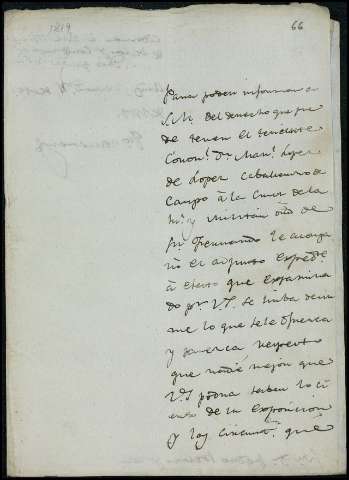 1819
66
Para poder informar a
S.M. del derecho que pue
de tener el teniente
Coron.l Dn Man.l Lopez
de Lopez Caballero de
Campo à la Cruz de la
R.l y Militar orn de
Sn Fernando le acompa
ño el adjunto exped.te
à efecto que examina
do pr V.S. se sirba decir
me lo que se le ofrezca
y parezca respecto
que nadie mejor que
V.S podra saber lo ci
erto de su exposicion
y las circunst.s que